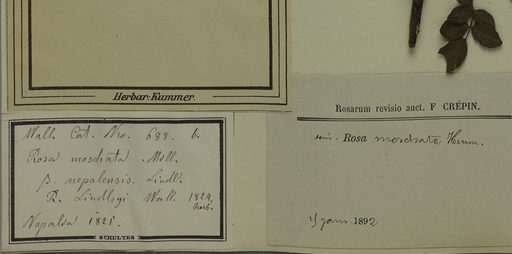 Herbar. Kummer.
Wall. Cat. Nro. 688. b.
Rosa moschata . Mill.
β. nepalensis. Lindl.
R. Lindleyi Wall. 1824
herb.
Napalia 1821.
SCHULTES
Rosarum revisio auct. F CRÉPIN.
Rosa moschata Herrm.
janv. 1892